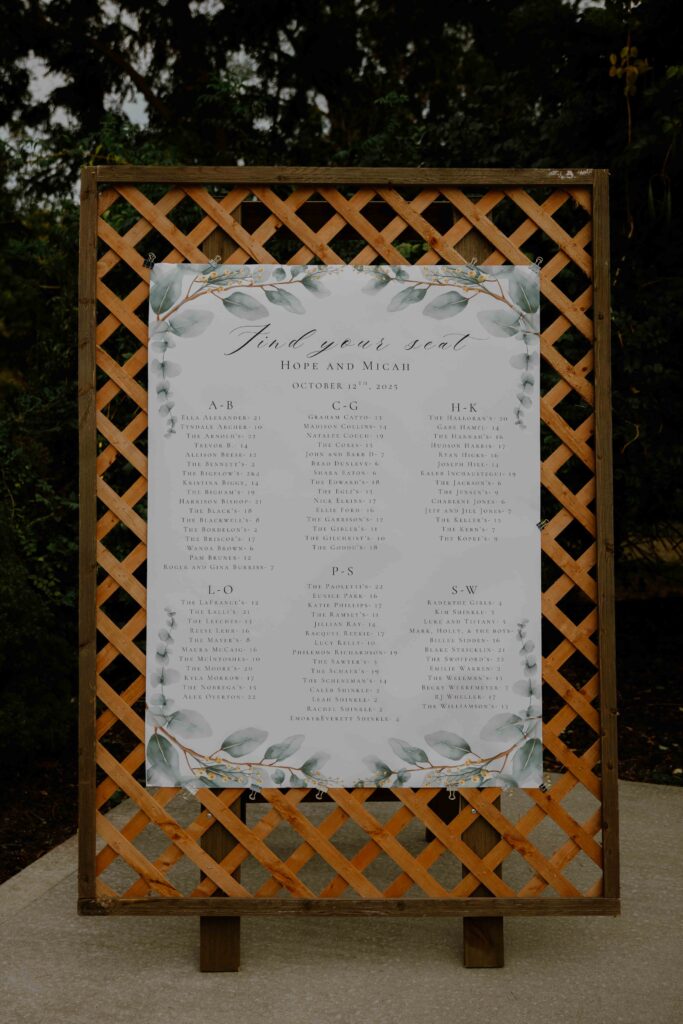 Find your seat
Hope and Micah
October 12th, 2025
A-B
Ella Alexander- 21
Tyndale Archer- 10
The Arnold's- 22
Trevor B.- 14
Allison Beese- 12
The Bennett's- 2
The Bigelow's- 2&4
Kristina Biggs, 14
The Bigham's- 19
Harrison Bishop- 21
The Black's- 18
The Blackwell's- 8
The Bordelon's- 2
The Briscoe's- 17
Wanda Brown- 6
Pam Brunes- 12
Roger and Gina Burriss- 7
C-G
Graham Catto- 22
Madison Collins- 14
Natalee Couch- 19
The Cores- 13
John and Barb D- 7
Brad Dunlevy- 6
Shara Eaton- 6
The Edward's- 18
The Egli's- 15
Nick Elkins- 17
Ellie Ford- 16
The Garrison's- 17
The Gibler's- 11
The Gilchrist's- 10
The Goddu's- 18
H-K
The Halloran's- 21
Gabe Hampl- 14
The Hannah's- 16
Hudson Harris- 17
Ryan Hicks- 16
Joseph Hill- 14
Kaleb Inchaustegui- 19
The Jackson's- 5
The Jensen's- 9
Charlene Jones- 6
Jeff and Jill Jones- 7
The Keller's- 15
The Kern's- 7
The Kopef's- 9
L-O
The LaFrance's- 12
The Lalli's- 21
The Leech's- 11
Reese Lehr- 16
The Mayer's- 8
Maura McCaig- 16
The McIntoshes- 10
The Moore's- 20
Kyla Morrow- 17
The Nobrega's- 15
Alex Overson- 22
P-S
The Paoletti's- 22
Eunice Park- 16
Katie Phillips- 17
The Ramsey's- 11
Jillian Ray- 14
Racquel Reekie- 17
Lucy Reilly- 10
Philemon Richardson- 19
The Sawyer's- 5
The Schaer's- 19
The Scheneman's- 14
Caleb Shinkle- 3
Leah Shinkle- 3
Rachel Shinkle- 3
Emory&Everett Shinkle- 4
S-W
Radertoe Girls- 4
Kim Shinkle- 3
Luke and Tiffany- 5
Mark, Holly, & the boys-
Billee Sidden- 16
Blake Stricklin- 21
The Swofford's- 22
Emilie Warren- 2
The Wakeman's- 11
Becky Weekemeyer- 7
RJ Woeller- 17
The Williamson's- 13